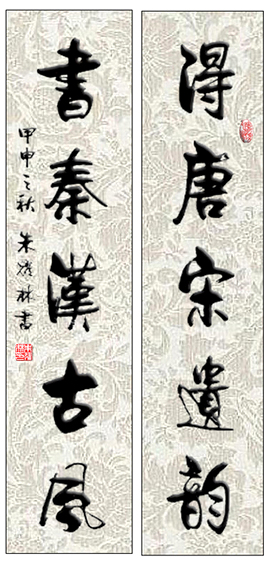 得唐宋遺韵
書秦漢古風
甲申之秋 朱 林書